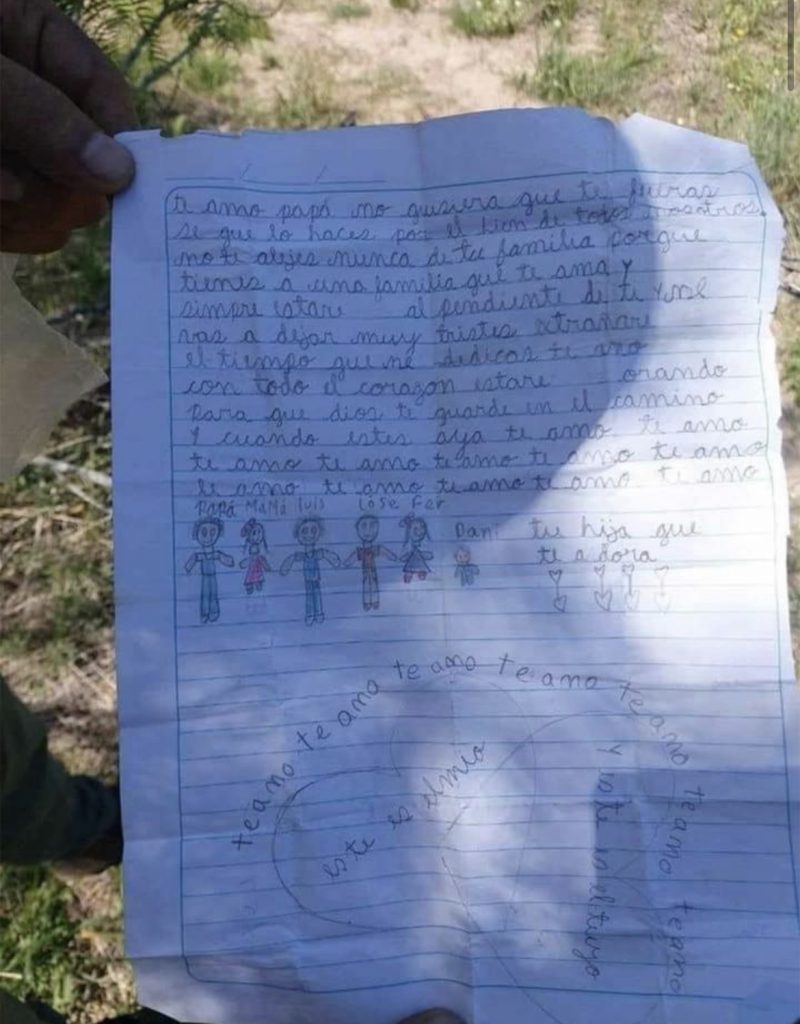 te amo papá no quisiera que te fueras
se que lo haces por el bien de todos nosotros.
no te alejes nunca de tu familia porque
tienes a una familia que te ama y
simpre estare al pendiente de ti y me
vas a dejar muy tristes extrañare
el tiempo que me dedicas te amo
con todo el corazon estare orando
para que dios te guarde en el camino
y cuando estes aya te amo te amo
te amo te amo te amo te amo te amo
te amo te amo te amo te amo te amo
Papá Mamá luis Jose Fer
Dani tu hija que
te adora
te amo te amo te amo te amo te amo te amo te amo
este es el mio
y este es el tuyo